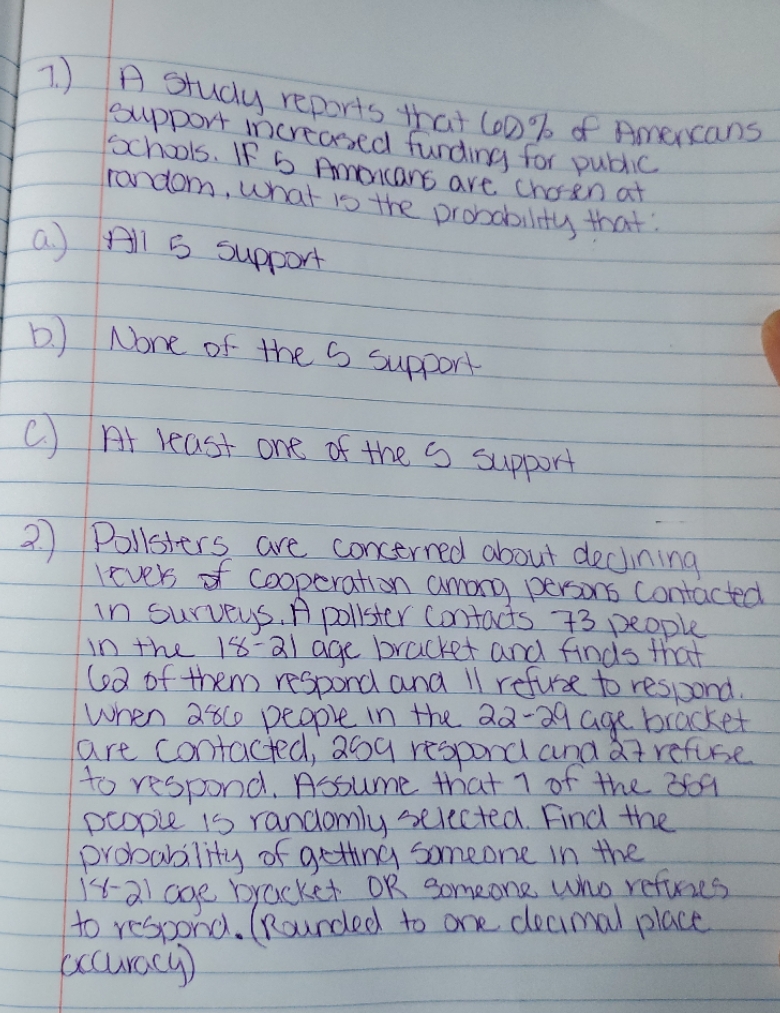 1.) A study reports that 60% of Americans
support increased funding for public
schools. If 5 Americans are chosen at
random, what is the probability that:
a.) All 5 support
b.) None of the 5 support
c.) At least one of the 5 support
2.) Pollsters are concerned about declining
levels of cooperation among persons contacted
in surveys. A pollster contacts 73 people
in the 18-21 age bracket and finds that
62 of them respond and 11 refuse to respond.
When 286 people in the 22-29 age bracket
are contacted, 259 respond and 27 refuse
to respond. Assume that 1 of the 359
people is randomly selected. Find the
probability of getting someone in the
18-21 age bracket OR someone who refuses
to respond. (Rounded to one decimal place
accuracy)